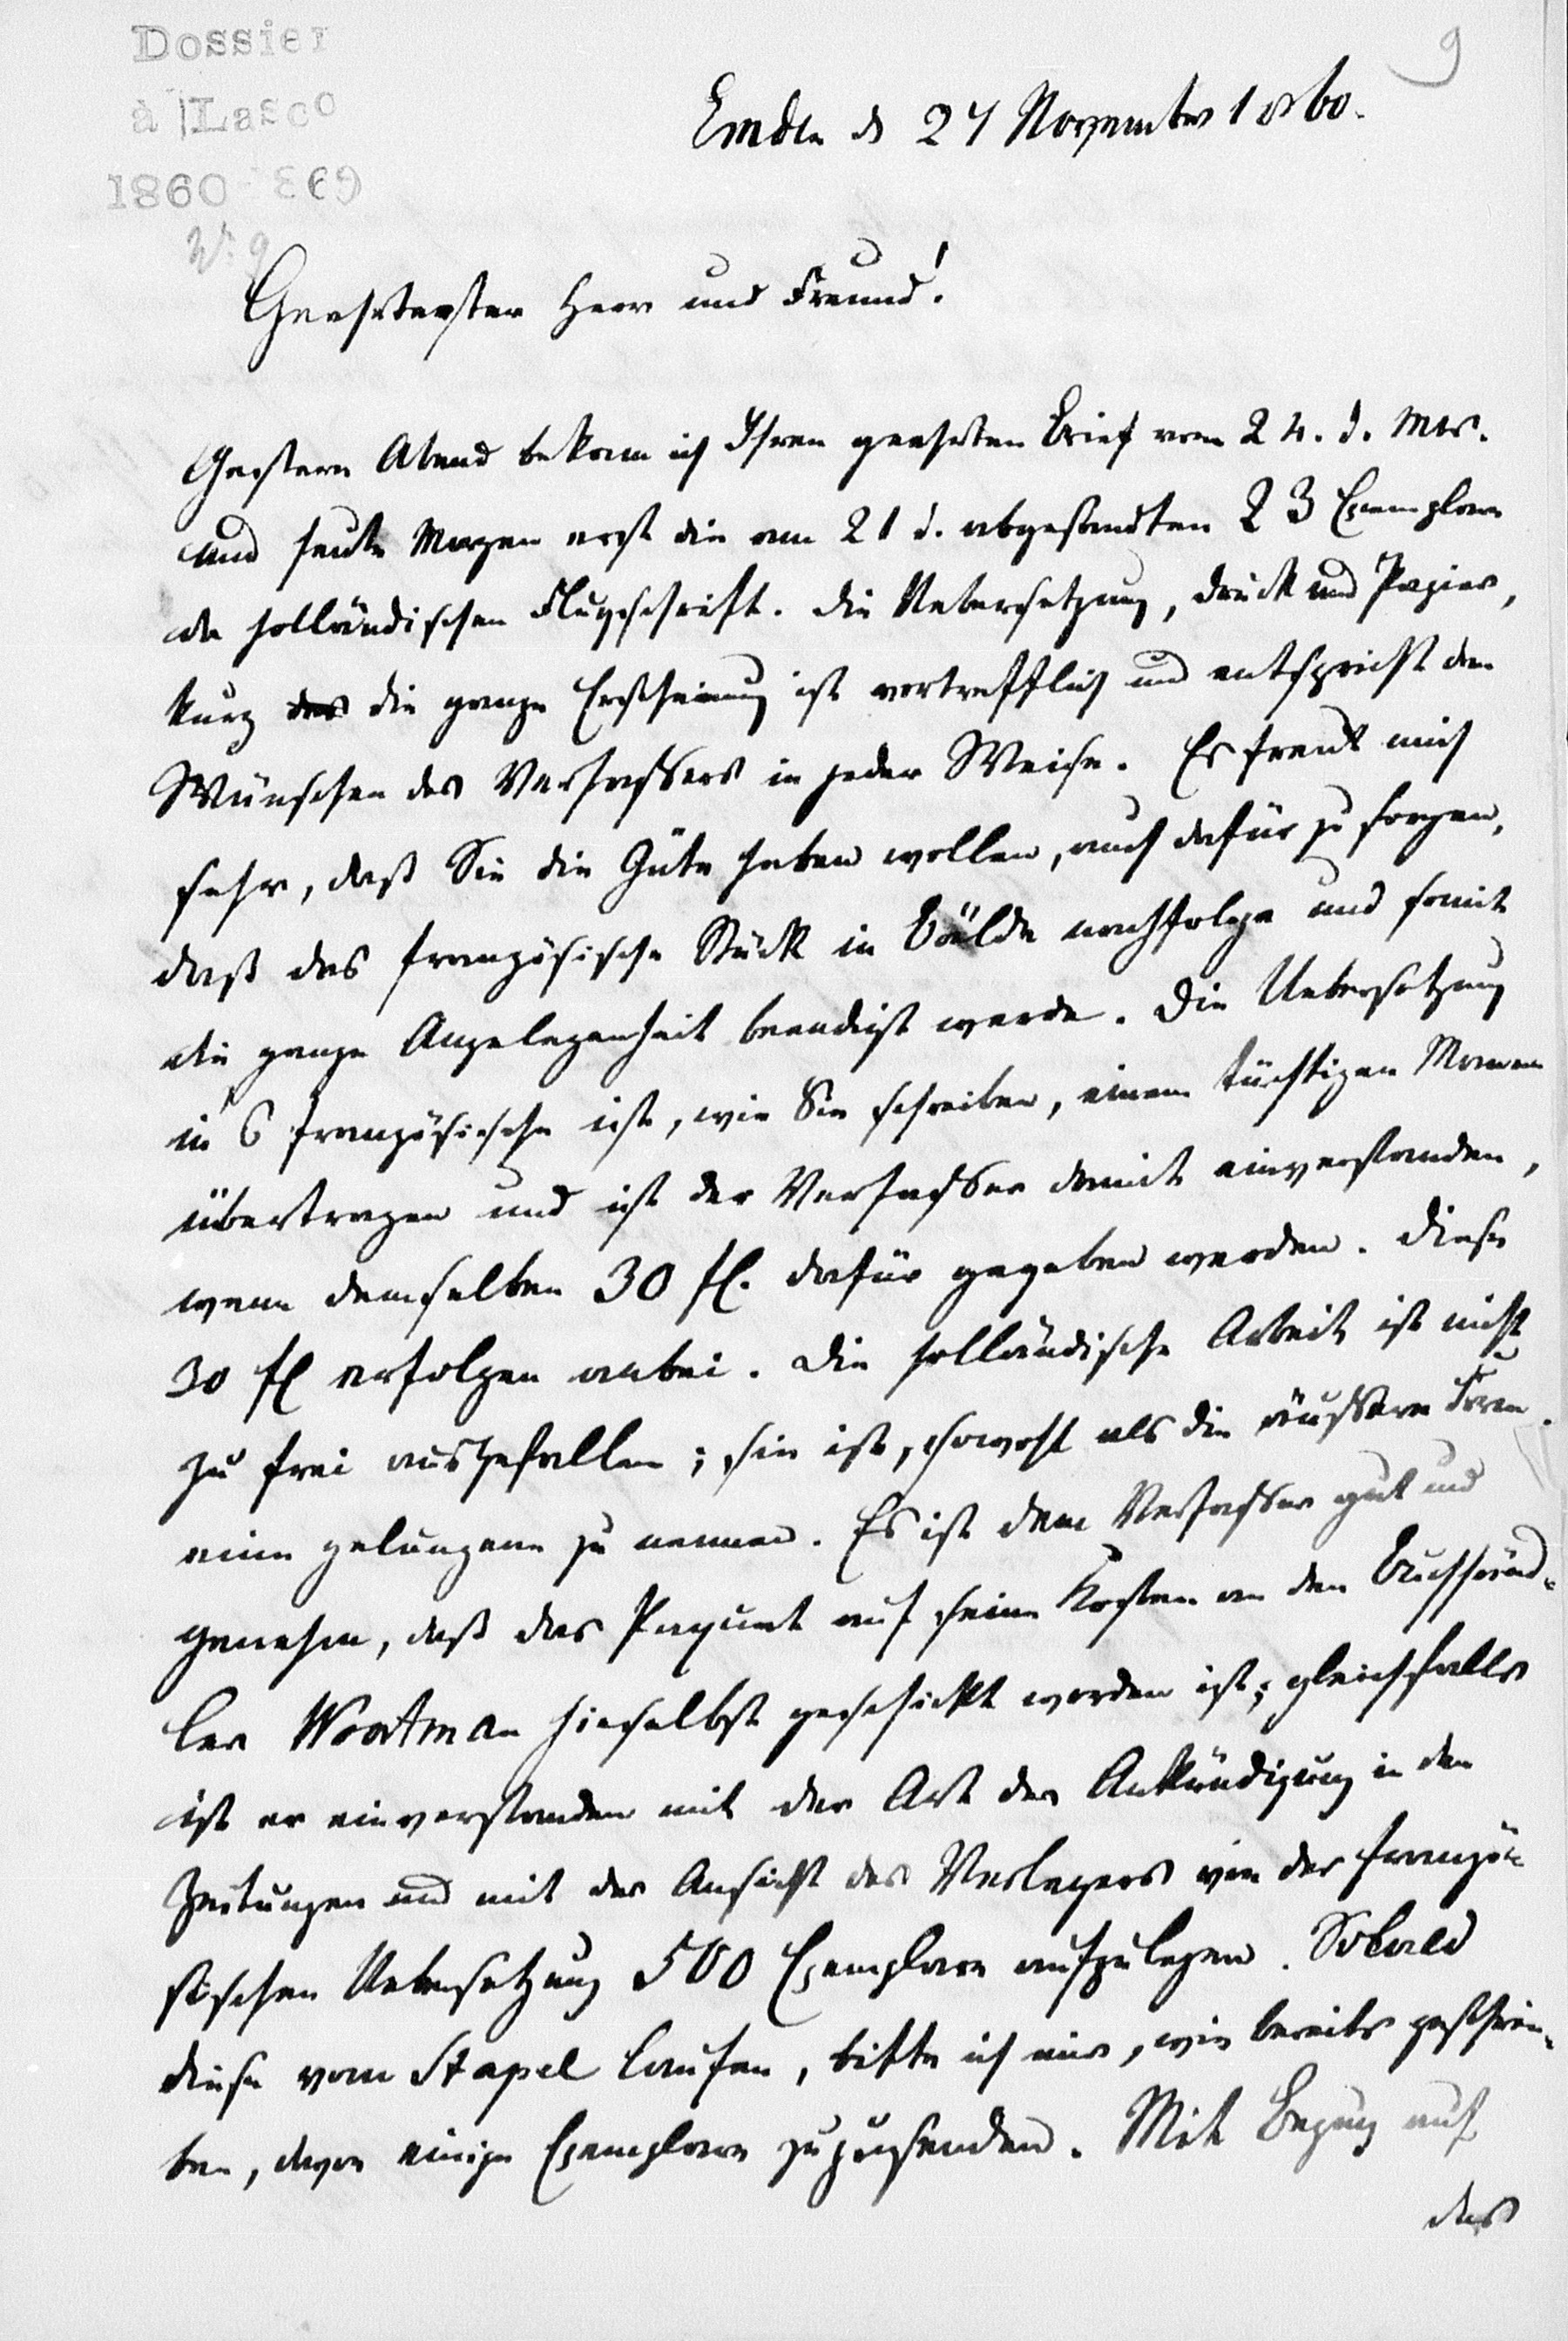 Dossier
à Lasco
1860-1869
N: 9
9
Emden d 27 November 1860.
Geehrtester Herr und Freund!
Gestern Abend bekam ich Ihren geehrten Brief vom 24. d. Mts.
und heute Morgen erst die am 21 d. abgesandten 23 Exemplare
der holländischen Flugschrift. Die Uebersetzung, Druck und Papier,
kurz das die ganze Erscheinung ist vortrefflich und entspricht den
Wünschen des Verfassers in jeder Weise. Es freut mich
sehr, daß Sie die Güte haben wollen, auch dafür zu sorgen,
daß das französische Stück in Bälde nachfolge und somit
die ganze Angelegenheit beendigt werde. Die Uebersetzung
in's französische ist, wie Sie schreiben, einem tüchtigen Manne
übertragen und ist der Verfasser damit einverstanden,
wenn demselben 30 fl. dafür gegeben werden. Diese
30 fl erfolgen anbei. Die holländische Arbeit ist nicht
zu frei ausgefallen; sie ist, sowohl als die äußere Form
eine gelungene zu nennen. Es ist dem Verfasser gut und
genehm, daß das Paquet auf seine Kosten an den Buchhänd-
ler Woortman hieselbst geschickt worden ist; gleichfalls
ist er einverstanden mit der Art der Ankündigung in den
Zeitungen und mit der Ansicht des Verlegers von der franzö-
sischen Uebersetzung 500 Exemplare aufzulegen. Sobald
diese vom Stapel laufen, bitte ich mir, wie bereits geschrie-
ben, davon einige Exemplare zuzusenden. Mit Bezug auf
das